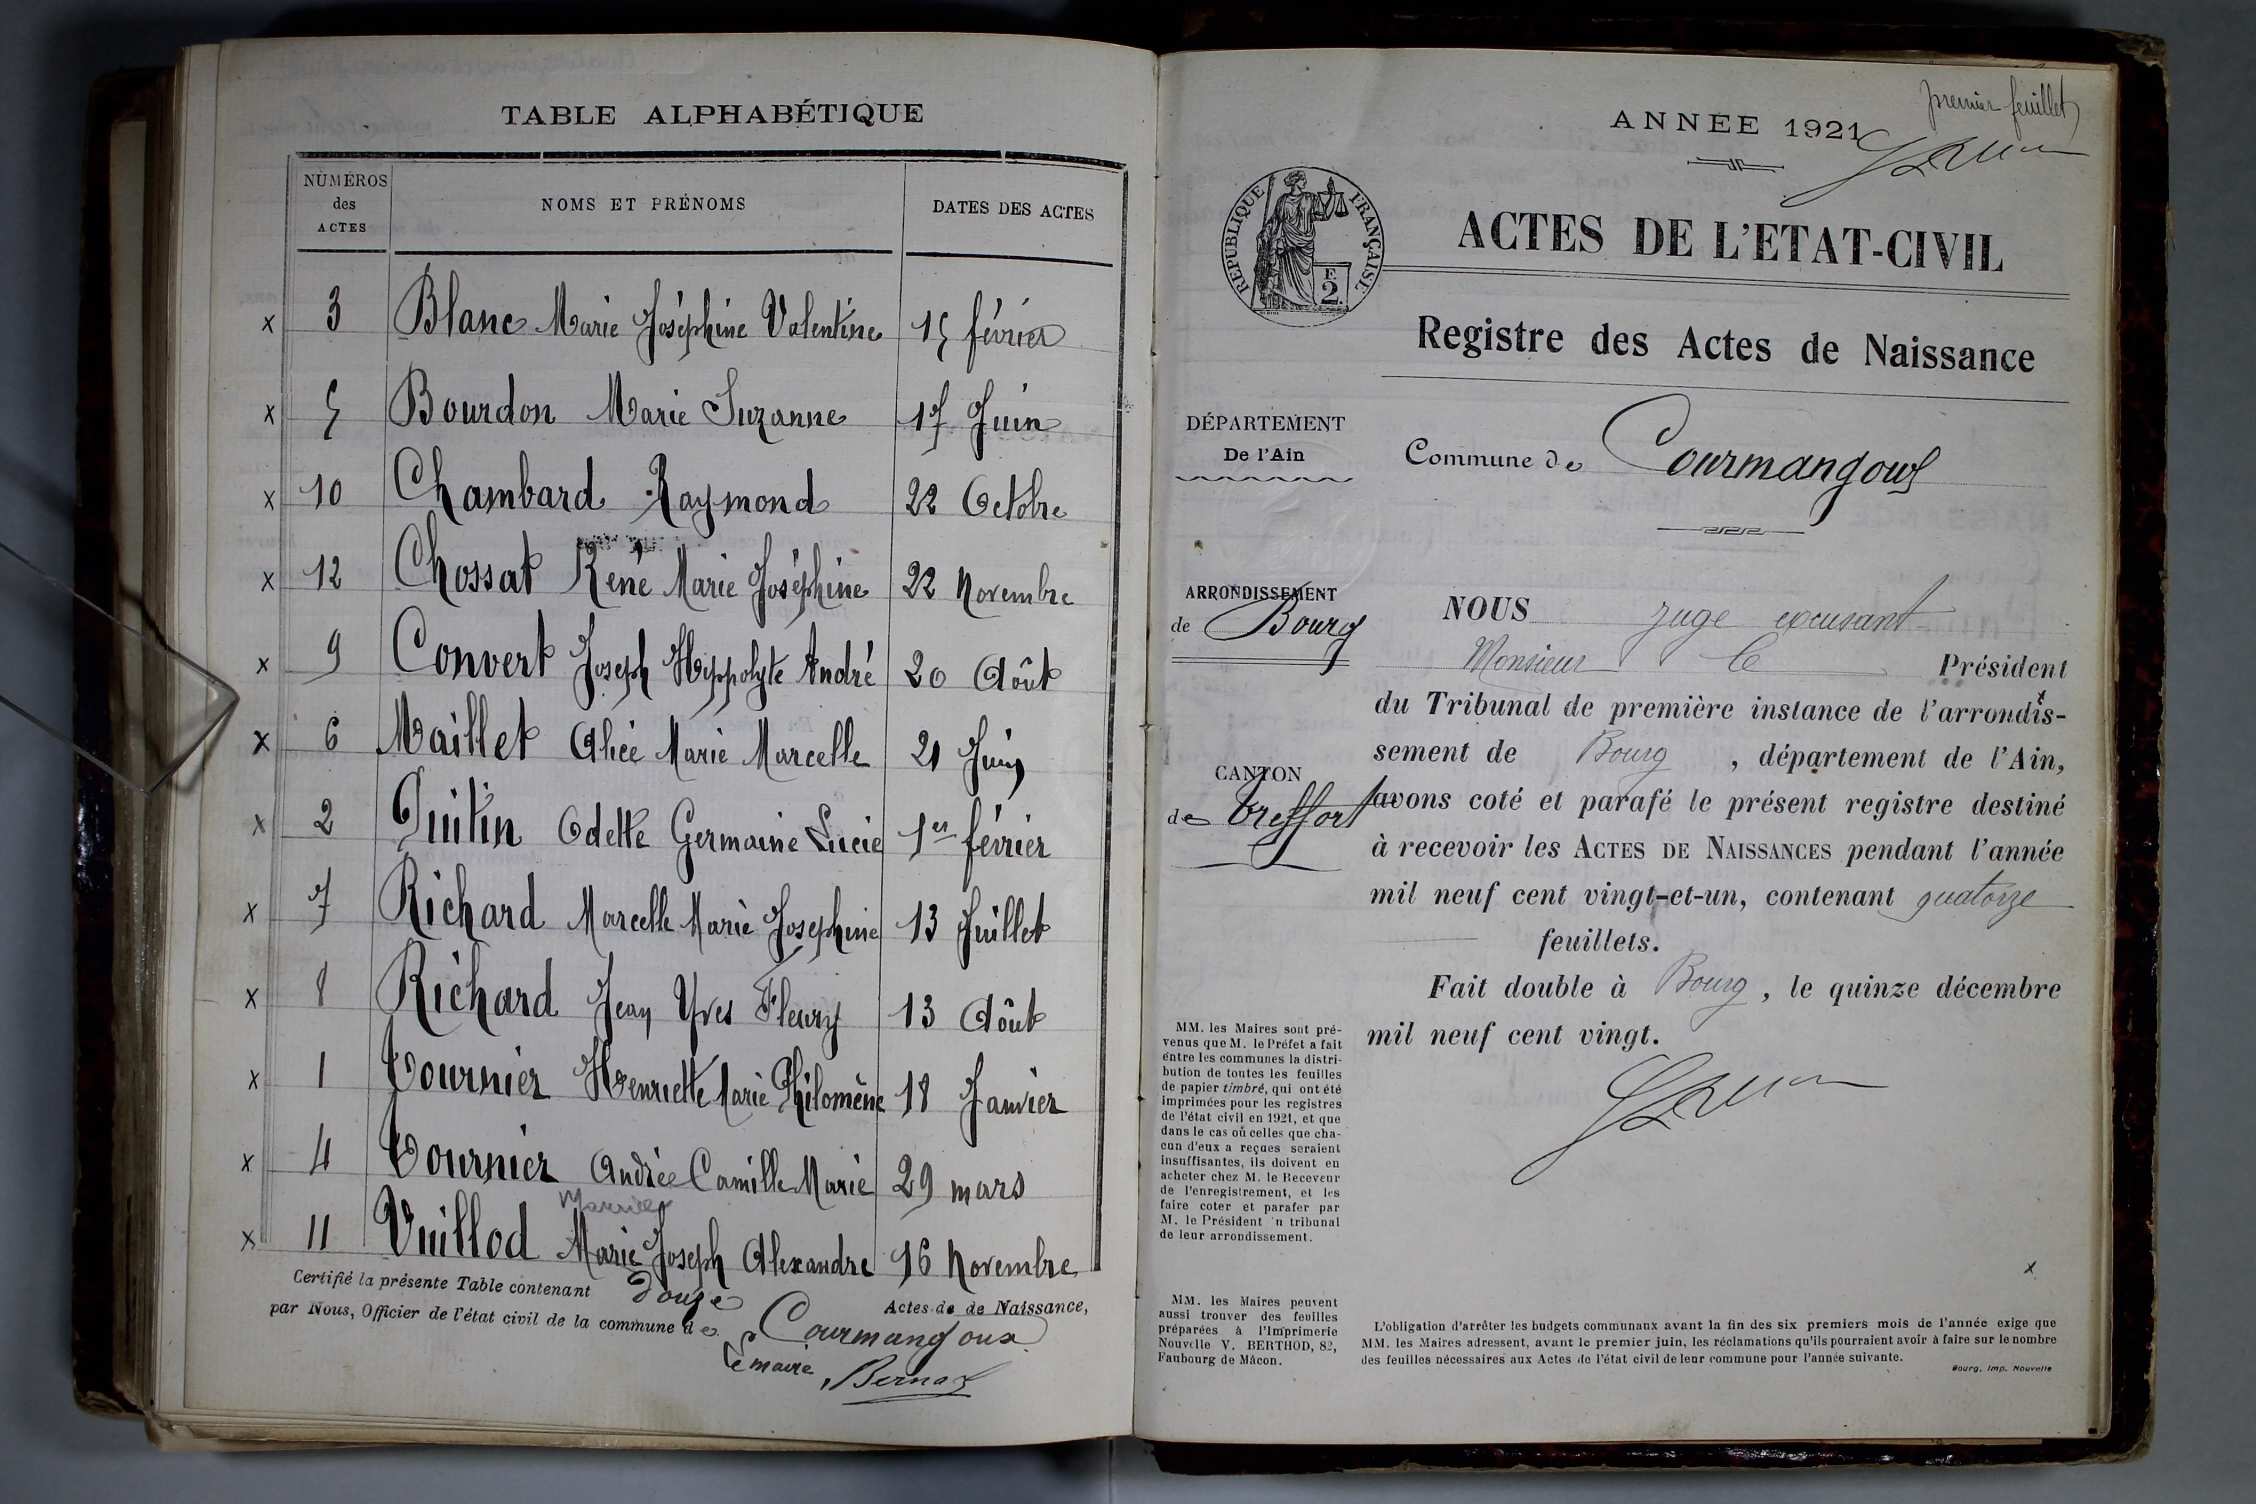 TABLE ALPHABÉTIQUE
NUMÉROS des ACTES
NOMS ET PRÉNOMS
DATES DES ACTES
x 3 Blanc Marie Joséphine Valentine 15 février
x 5 Bourdon Marie Suzanne 17 Juin
x 10 Chambard Raymond 22 Octobre
x 12 Chossat René Marie Joséphine 22 Novembre
x 9 Convert Joseph Hippolyte André 20 Août
x 6 Maillet Alice Marie Marcelle 21 Juin
x 2 Quitin Odette Germaine Lucie 1er février
x 7 Richard Marcelle Marie Josephine 13 Juillet
x 8 Richard Jean Yves Fleury 13 Août
x 1 Tournier Henriette Marie Philomène 18 Janvier
x 4 Tournier Andrée Camille Marie 29 mars
x 11 Vuillod Marie Joseph Alexandre 16 Novembre
Certifié la présente Table contenant douze Actes de de Naissance,
par Nous, Officier de l'état civil de la commune de Courmangoux
Le maire
premier feuillet
ANNÉE 1921
RÉPUBLIQUE FRANÇAISE
F. 2
ACTES DE L'ETAT-CIVIL
Registre des Actes de Naissance
DÉPARTEMENT
De l'Ain
Commune de Courmangoux
ARRONDISSEMENT
de Bourg
CANTON
de Treffort
NOUS juge excusant
Monsieur le Président
du Tribunal de première instance de l'arrondis-
sement de Bourg, département de l'Ain,
avons coté et parafé le présent registre destiné
à recevoir les ACTES DE NAISSANCES pendant l'année
mil neuf cent vingt-et-un, contenant quatorze
feuillets.
Fait double à Bourg, le quinze décembre
mil neuf cent vingt.
MM. les Maires sont pré-
venus que M. le Préfet a fait
entre les communes la distri-
bution de toutes les feuilles
de papier timbré, qui ont été
imprimées pour les registres
de l'état civil en 1921, et que
dans le cas où celles que cha-
cun d'eux a reçues seraient
insuffisantes, ils doivent en
acheter chez M. le Receveur
de l'enregistrement, et les
faire coter et parafer par
M. le Président 'u tribunal
de leur arrondissement.
MM. les Maires peuvent
aussi trouver des feuilles
préparées à l'Imprimerie
Nouvelle V. BERTHOD, 82,
Faubourg de Mâcon.
x
L'obligation d'arrêter les budgets communaux avant la fin des six premiers mois de l'année exige que
MM. les Maires adressent, avant le premier juin, les réclamations qu'ils pourraient avoir à faire sur le nombre
des feuilles nécessaires aux Actes de l'état civil de leur commune pour l'année suivante.
Bourg, Imp. Nouvelle